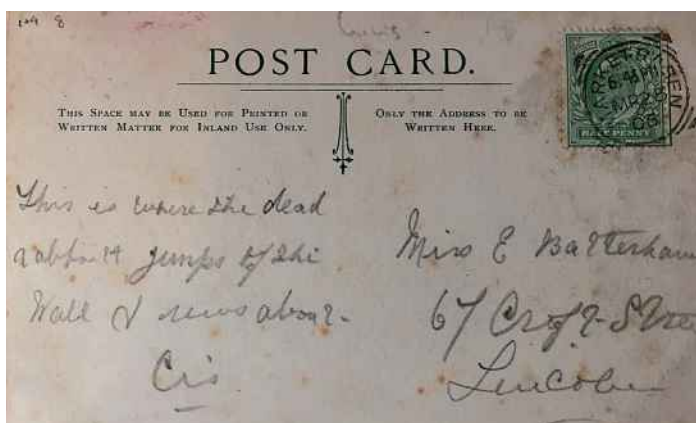 POST CARD.
THIS SPACE MAY BE USED FOR PRINTED OR
WRITTEN MATTER FOR INLAND USE ONLY.
ONLY THE ADDRESS TO BE
WRITTEN HERE.
HALF PENNY
This is where the dead
rabbit jumps of the
Wall & runs about.
Cis
Miss E Battersham
67 Croft Stre
Lincoln